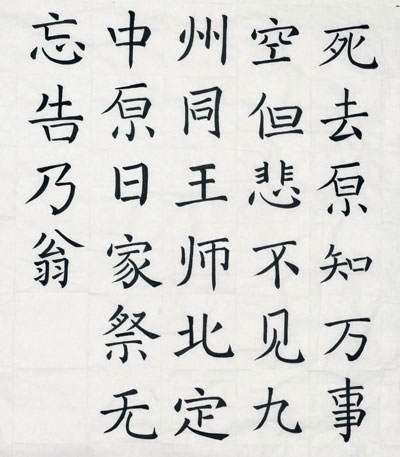 死去原知万事
空但悲不见九
州同王师北定
中原日家祭无
忘告乃翁